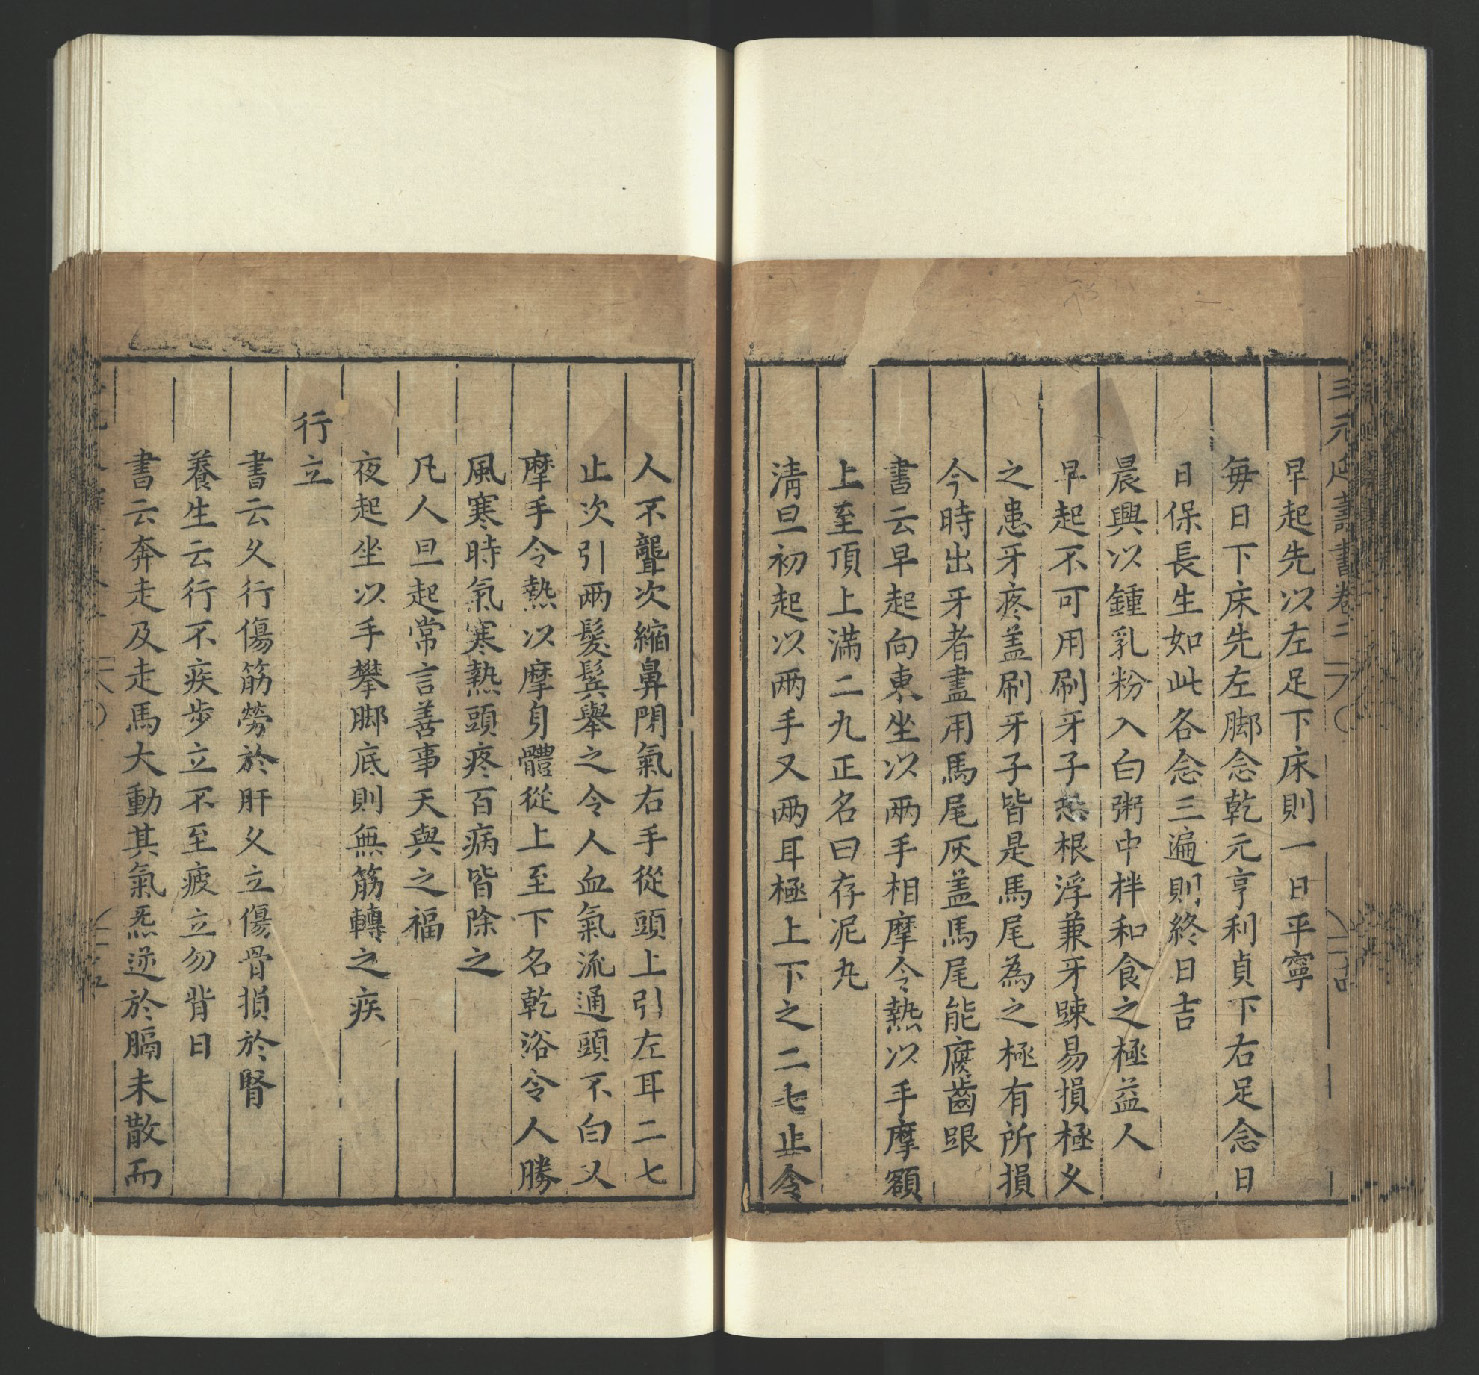 三元延壽書卷二
早起先以左足下床則一日平寧
每日下床先左脚念乾元亨利貞下右足念日
日保長生如此各念三遍則終日吉
晨興以鍾乳粉入白粥中拌和食之極益人
早起不可用刷牙子恐根浮兼牙踈易損極久
之患牙疼盖刷牙子皆是馬尾為之極有所損
今時出牙者盡用馬尾灰盖馬尾能腐齒齦
書云早起向東坐以兩手相摩令熱以手摩額
上至頂上滿二九正名曰存泥丸
清旦初起以兩手叉兩耳極上下之二七止令
人不聾次縮鼻閉氣右手從頭上引左耳二七
止次引兩髮鬂舉之令人血氣流通頭不白又
摩手令熱以摩身體從上至下名乾浴令人勝
風寒時氣寒熱頭疼百病皆除之
凡人旦起常言善事天與之福
夜起坐以手攀脚底則無筋轉之疾
行立
書云久行傷筋勞於肝久立傷骨損於腎
養生云行不疾步立不至疲立勿背日
書云奔走及走馬大動其氣炁逆於膈未散而